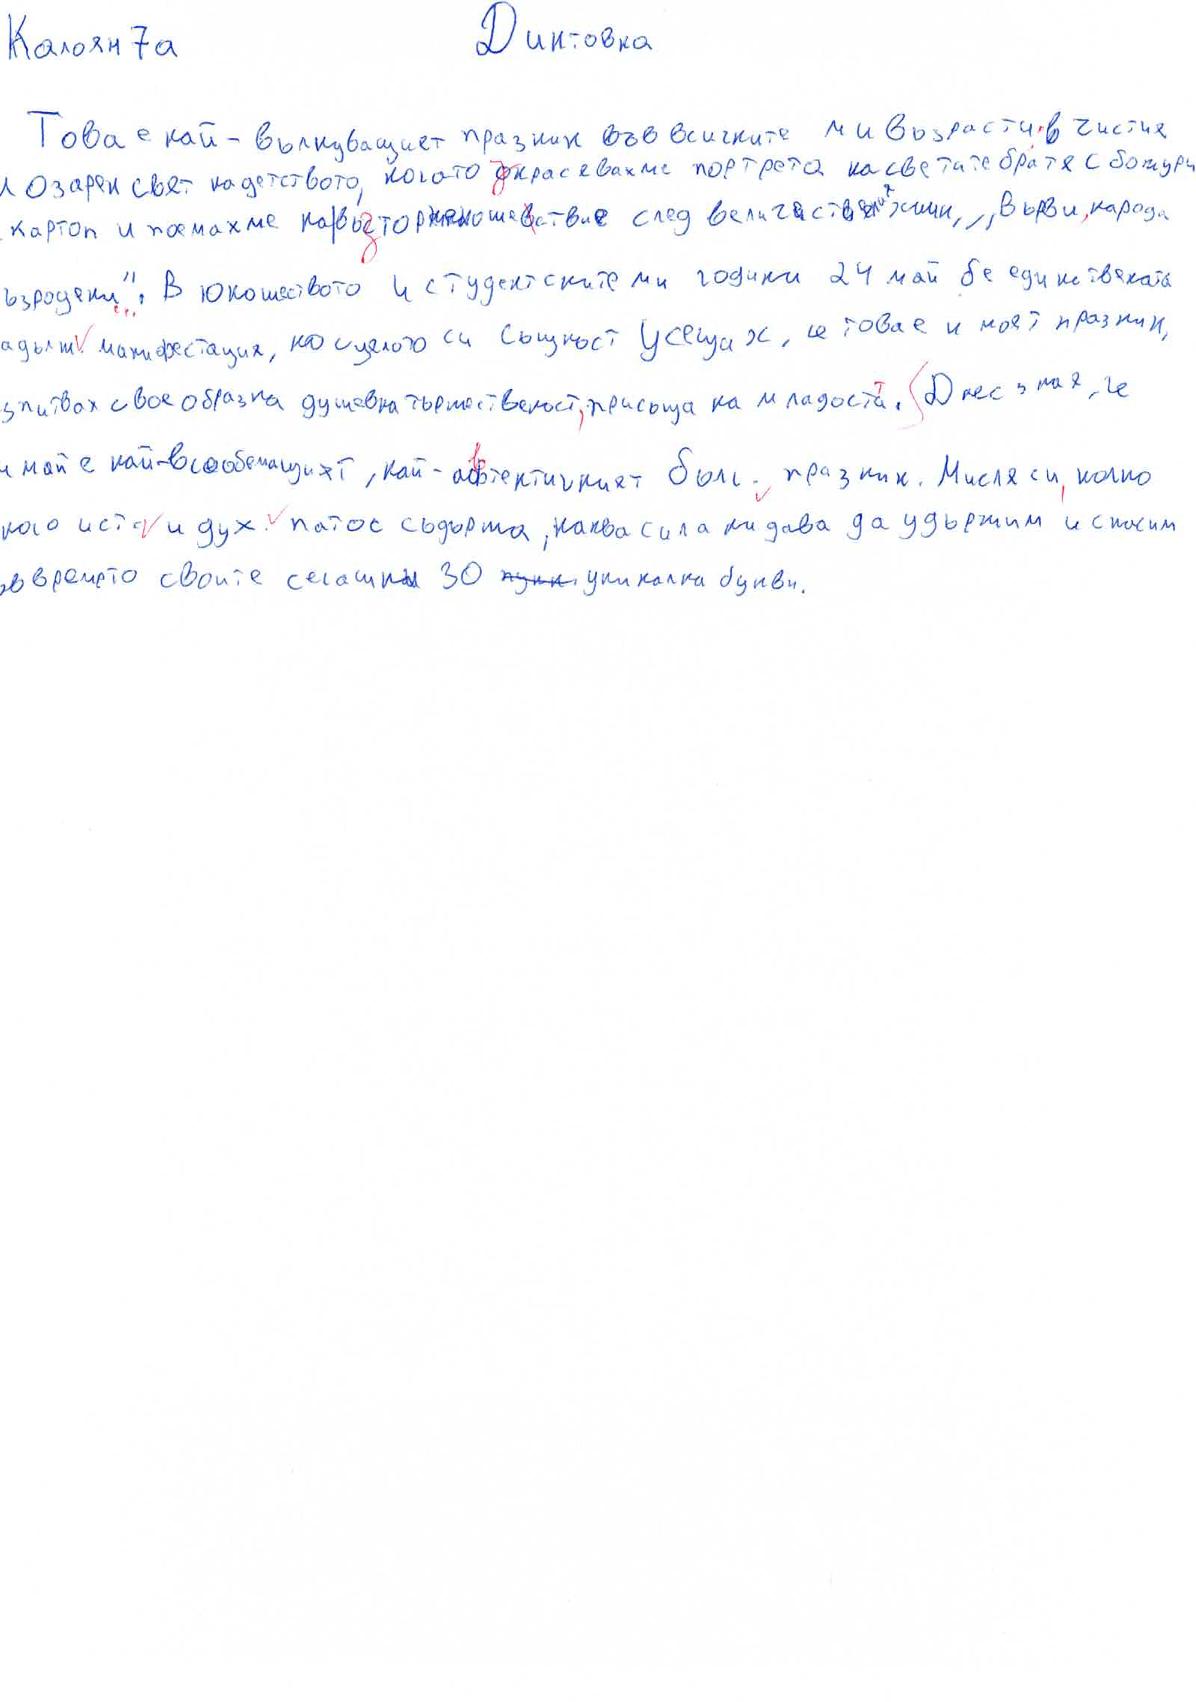 Калоян 7а Диктовка
Това е най-вълнуващият празник във всичките ми възрасти. в чистия
озарен свят на детството, когато украсявахме портрета на светите братя с божури
картон и поемахме на шествие след величествения химн, „Върви, народе
възродени". В юношеството и студентските ми години 24 май бе единствената
манифестация, с цялото си същност усещах, че това е и моят празник,
своеобразна душевна тържественост, присъща на младостта. Днес зная, че
май е най-всеобемащият, най-автентичният бълг. празник. Мисля си, колко
много ист. и дух. патос съдържа, каква сила ни дава да удържим и спасим
във времето своите сегашни 30 уникална букви.